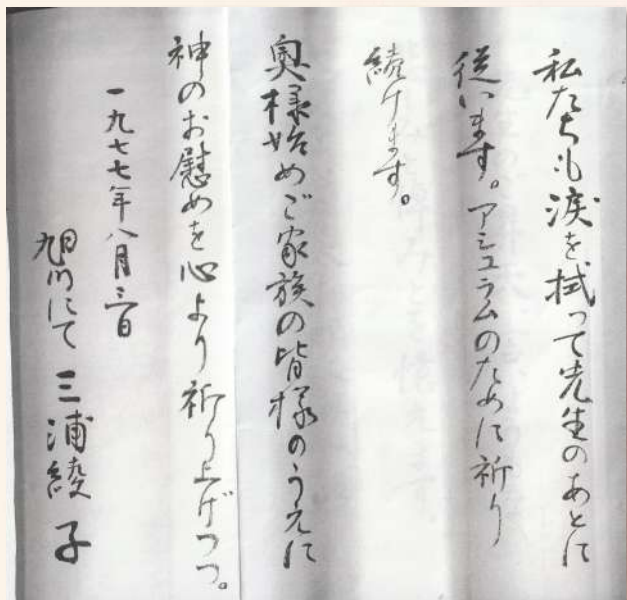 私たちも涙を拭って先生のあとに
従います。アシュラムのために祈り
続けます。
奥様始めご家族の皆様のうえに
神のお慰めを心より祈り上げつつ。
一九七七年八月三日
旭川にて 三浦綾子